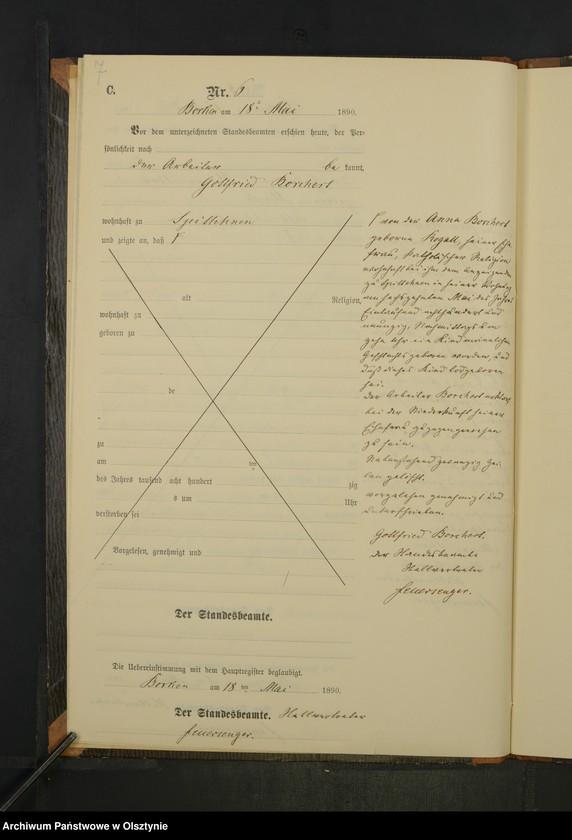 7
C.
Nr. 6
Borken am 18ᵗ Mai 1890.
Vor dem unterzeichneten Standesbeamten erschien heute, der Per-
sönlichkeit nach
der Arbeiter be kannt,
Gottfried Borchert
wohnhaft zu Spirklehnen
und zeigte an, daß
alt Religion,
wohnhaft zu
geboren zu
de
zu
am ten
des Jahres tausend acht hundert zig
s um Uhr
verstorben sei
Vorgelesen, genehmigt und
von der Anna Borchert
geborne Rogall, seiner Ehe
frau, katholischer Religion
wohnhaft bei ihm dem Anzeigenden
zu in seiner Wohnung
am sechszehnten Mai des Jahres
Eintausend achthundert und
neunzig, Nachmittags um
zehn Uhr ein Kind männlichen
Geschlechts geboren worden, und
daß dieses Kind todtgeboren
sei.
Der Arbeiter Borchert erklärt
bei der Niederkunft seiner
Ehefrau zugegen gewesen
zu sein.
Nebenstehend zwanzig Zei-
len gelöscht.
Vorgelesen genehmigt und
unterschrieben.
Gottfried Borchert.
Der Standesbeamte
Stellvertreter
Feuersenger.
Der Standesbeamte.
Die Uebereinstimmung mit dem Hauptregister beglaubigt.
Borken am 18 ten Mai 1890.
Der Standesbeamte. Stellvertreter
Feuersenger.
Archiwum Państwowe w Olsztynie